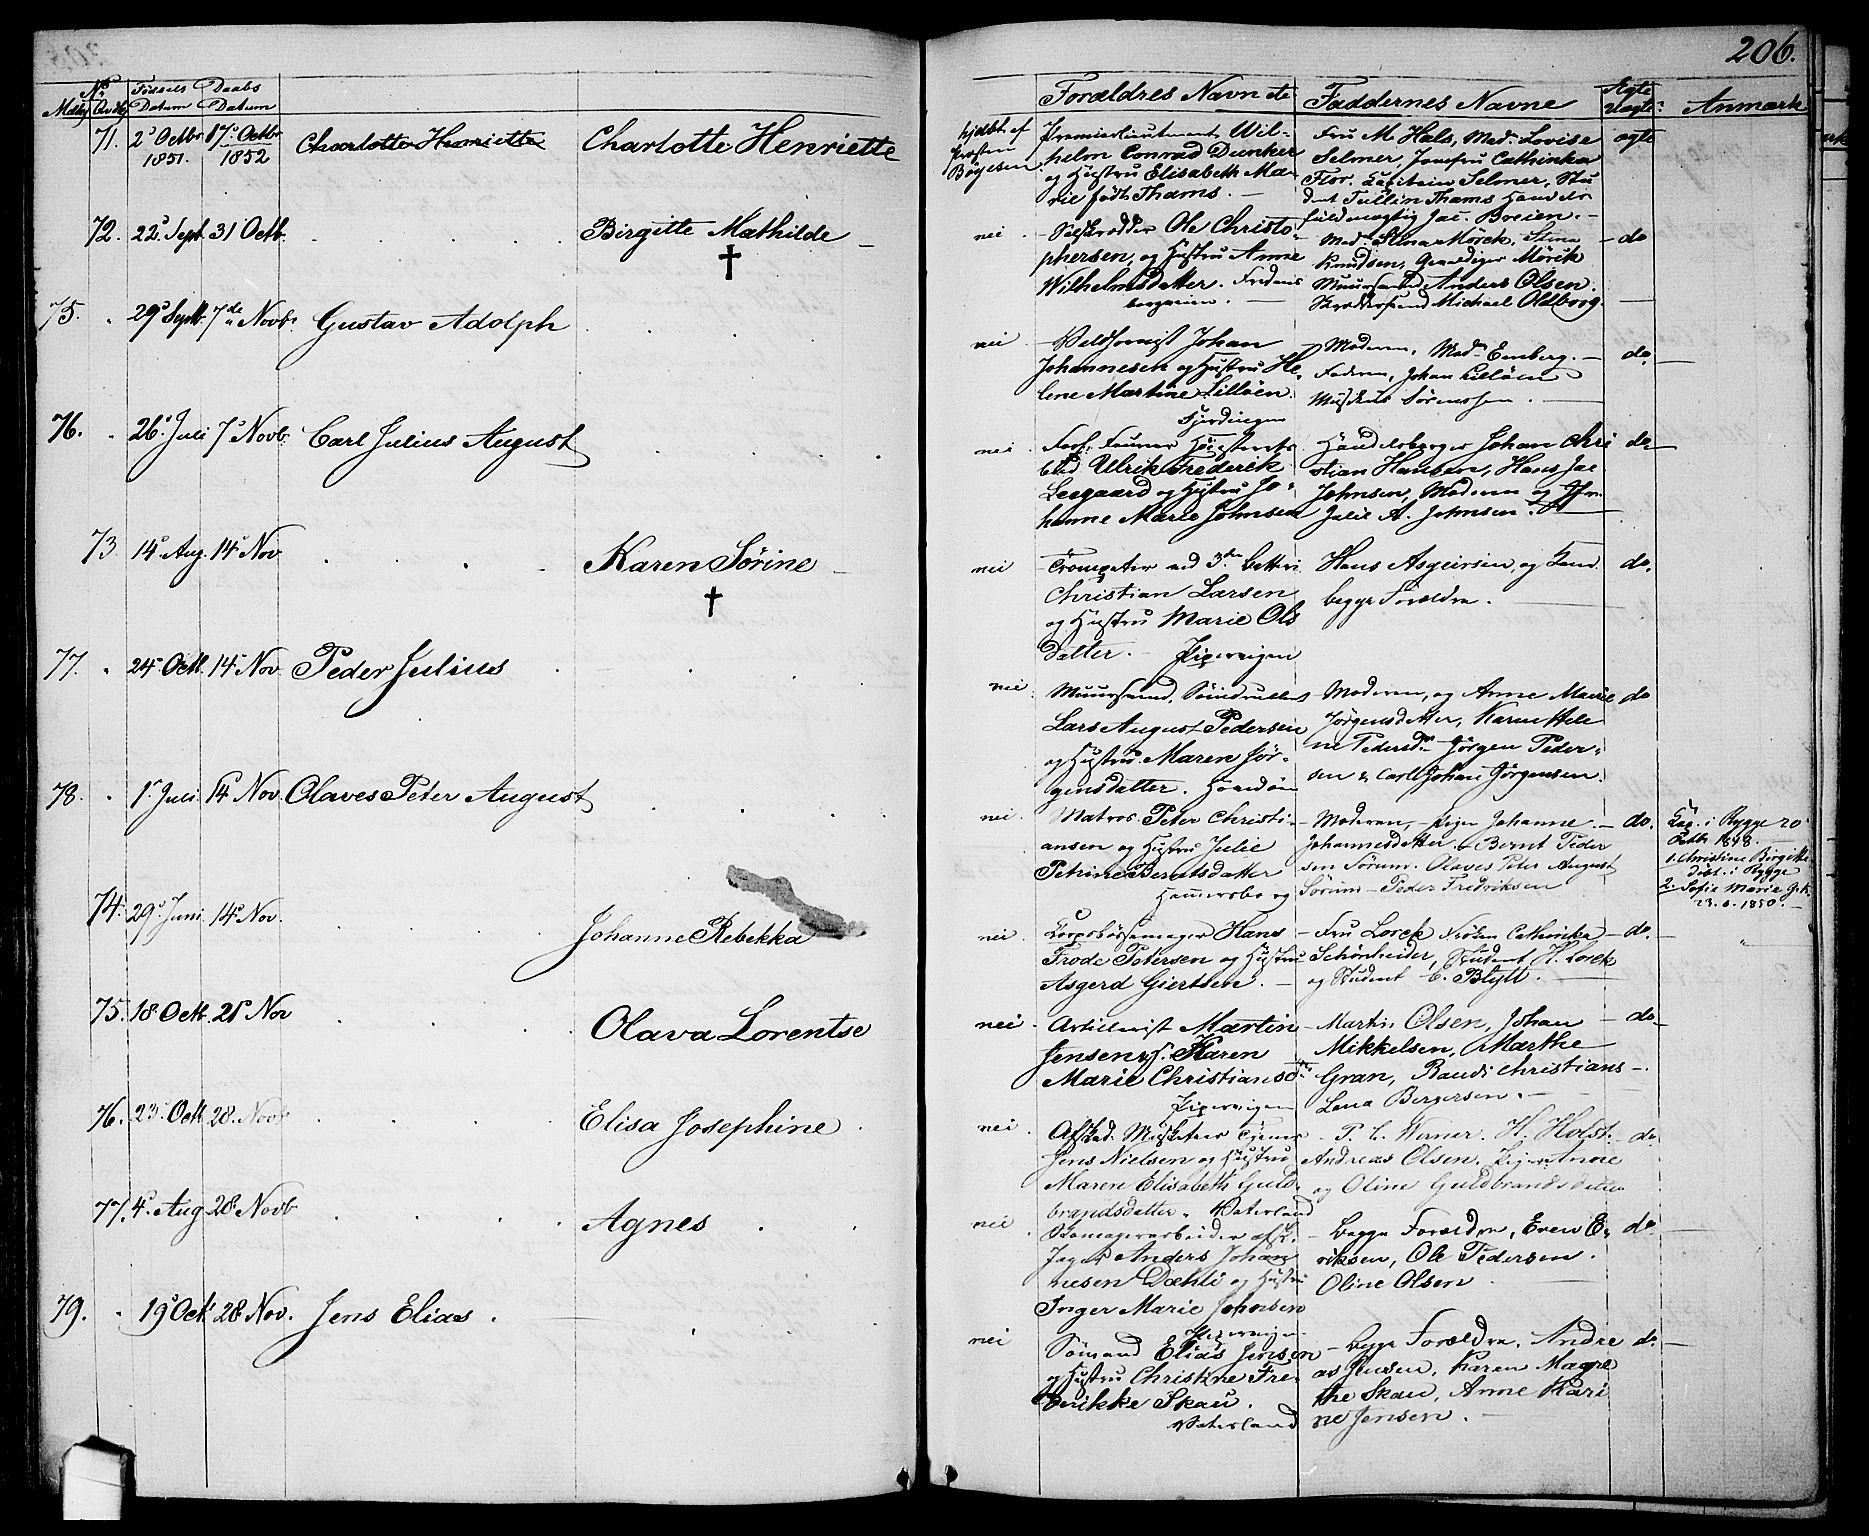 206.
No. Fødsels Daabs
Mdkj. Qvdkj. Datum Datum
Forældres Navne etc Faddernes Navne Ægte Uægte Anmærk
71. 2d Octbr 1851. 17d Octbr 1852 Charlotte Henriette Charlotte Henriette
hjdbt. af Præsten Bøyesen
Premierlieutenant Wil-
helm Conrad Dunker
og Hustru Elisabeth Ma-
rie født Thams. –
Fru M. Hals, Mad. Lovise
Selmer, Jomfru Cathinka
Flor. Capitain Selmer, Stu
dent Tullin Thams Handels
fuldmægtig Jac. Breien. –
ægte
72. 22d Sept. 31 Octb. Birgitte Mathilde –
†
nei. Ole Christo-
phersen, og Hustru Anne
Wilhelmsdatter. Fredens
borgveien. –
Mad. Stina Mørck, Stina
Knudsen, Gevaldiger Mørck
Muursvend Anders Olsen.
Skreddersvend Michael Oldborg.
– do
75. 29d Septb. 7de Novb. Gustav Adolph
nei. Johan
Johannesen og Hustru He-
lene Martine Lilløen.
Fjerdingen
– Moderen, Mad. Emberg. –
Faderen, Johan Lilløen
Sørenssen. –
do. –
76. 26d Juli 7d Novb. Carl Julius August
nei. Høiesterets
Ulrik Frederik
Leegaard og Hustru Jo-
hanne Marie Johnsen
Handelsborger Johan Chri
stian Hansen, Hans Jac
Johnsen, Moderen og Jfr.
Julie A. Johnsen. –
do –
73. 14d Aug. 14d Nov. Karen Sørine –
†
nei Trompeter ved 3die Batteri
Christian Larsen
og Hustru Marie Ols
datter. – Pipervigen
Hans Asgeirsen, og
begge Forældre. –
do.
77. 24d Octb. 14d Nov. Peder Julius
nei. Muursvend,
Lars August Pedersen
og Hustru Maren Jør-
gensdatter.
Moderen, og Anne Marie
Jørgensdatter, Karen Hele
ne Pedersd. Jørgen Peder-
sen & Carl Johan Jørgensen.
do
78. 1d Juli 14 Nov. Olaves Peter August
nei. Matros. Peter Christi-
ansen og Hustru Julie
Petrine Berntsdatter
Hammersborg
– Moderen, – Pigen Johanne. –
Johannesdatter – Bernt Peder
sen Sørum. Olaves Peter August
Sørum – Peder Fredriksen
do.
Cop. i Rygge 20
Octb. 1848. –
1. Christine Birgitte
døbt. i Rygge
2. Sofie Marie
1850. –
74. 29d Juni 14d Nov. Johanne Rebekka
nei. Hans
Frode Petersen og Hustru
Asgerd Giertsen. –
– Fru Lorck Frøken Cathinka
Schønheider, Student H. Lorck
og Student C. Blytt. –
– do. –
75. 18d Octb. 21d Nov Olava Lorentse
nei. Artillerist Martin
Jensen, H. Karen
Marie Christiansd.
Pipervigen
– Martin Olsen, Johan
Mikkelsen, Marthe
Gran, Randi Christians –.
Lena Bergersen. –
– do –
76. 23d Octb. 28. Novb. Elisa Josephine.
nei. Afsked. Musketeer Tjener
Jens Nielsen og Hustru
Maren Elisabeth Guld-
brandsdatter. Vaterland
– P. C. Werner. H. Holst.
Andreas Olsen. Pigerne Anne
og Oline Guldbrandsdatter
– do.
77. 4d Aug 28d Novb. Agnes
nei. Skomagerarbeider
Jæger Anders Johan
nesen Dæhli og Hustru
Inger Marie Johnsen
Pipervigen.
– begge Forældre, Even E-
riksen, Ole Pedersen.
Oline Olsen –
do. –
79. 19d Octb. 28d Nov. Jens Elias. –
nei Sømand Elias Jensen
og Hustru Christine Fre-
derikke Skau.
Vaterland
– begge Forældre. Andre
as Jensen, Karen Magre
the Skau, Anne Kari
ne Jensen. –
do. –